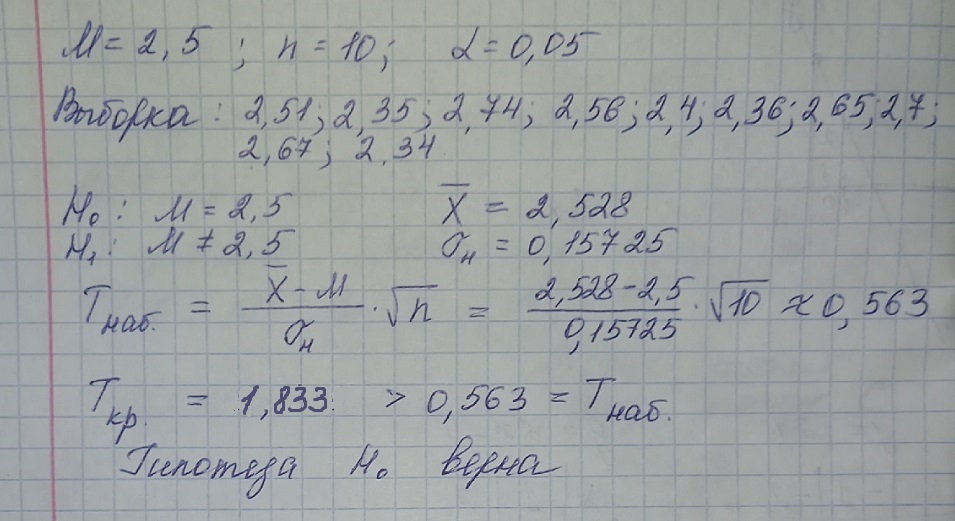 M = 2,5 ; n = 10; α = 0,05
Выборка: 2,51; 2,35; 2,74; 2,56; 2,4; 2,36; 2,65; 2,7;
2,67; 2,34
H₀: M = 2,5 X̄ = 2,528
H₁: M ≠ 2,5 σн = 0,15725
Tнаб. = (X̄ - M)/σн · √n = (2,528 - 2,5)/0,15725 · √10 ≈ 0,563
Tкр. = 1,833 > 0,563 = Tнаб.
Гипотеза H₀ верна